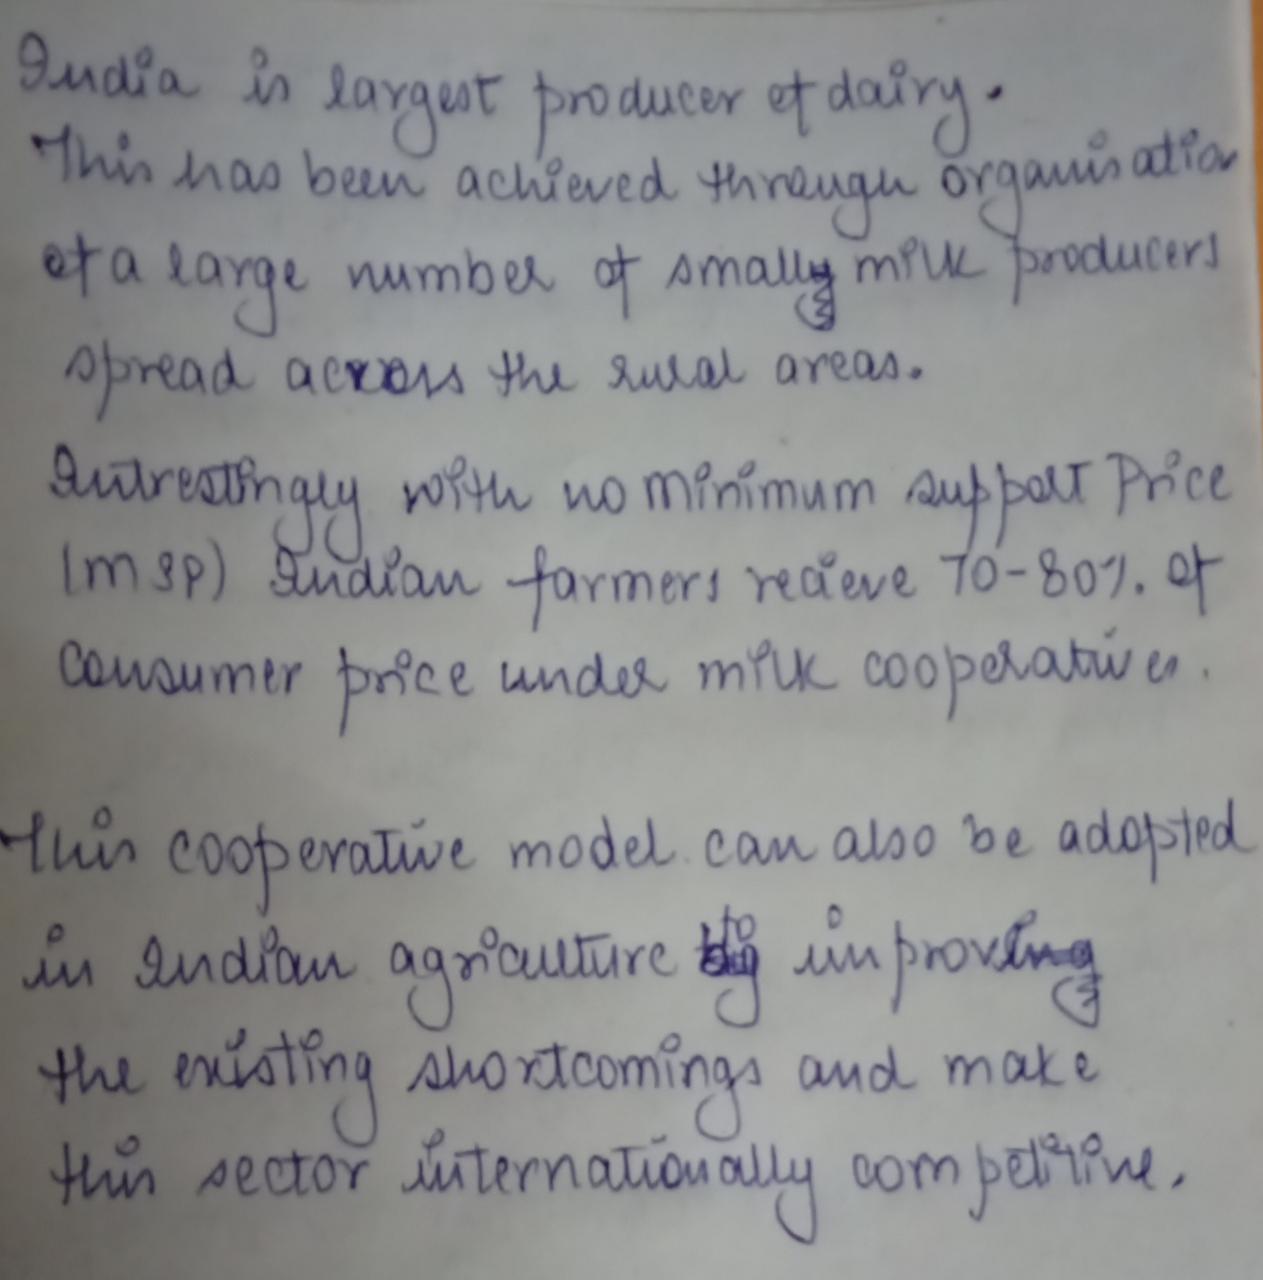 India is largest producer of dairy.
This has been achieved through organisation
of a large number of small milk producers
spread across the rural areas.
Intrestingly with no minimum support Price
(MSP) Indian farmers recieve 70-80% of
consumer price under milk cooperatives.
This cooperative model can also be adopted
in Indian agriculture to improve
the existing shortcomings and make
this sector internationally competitive.